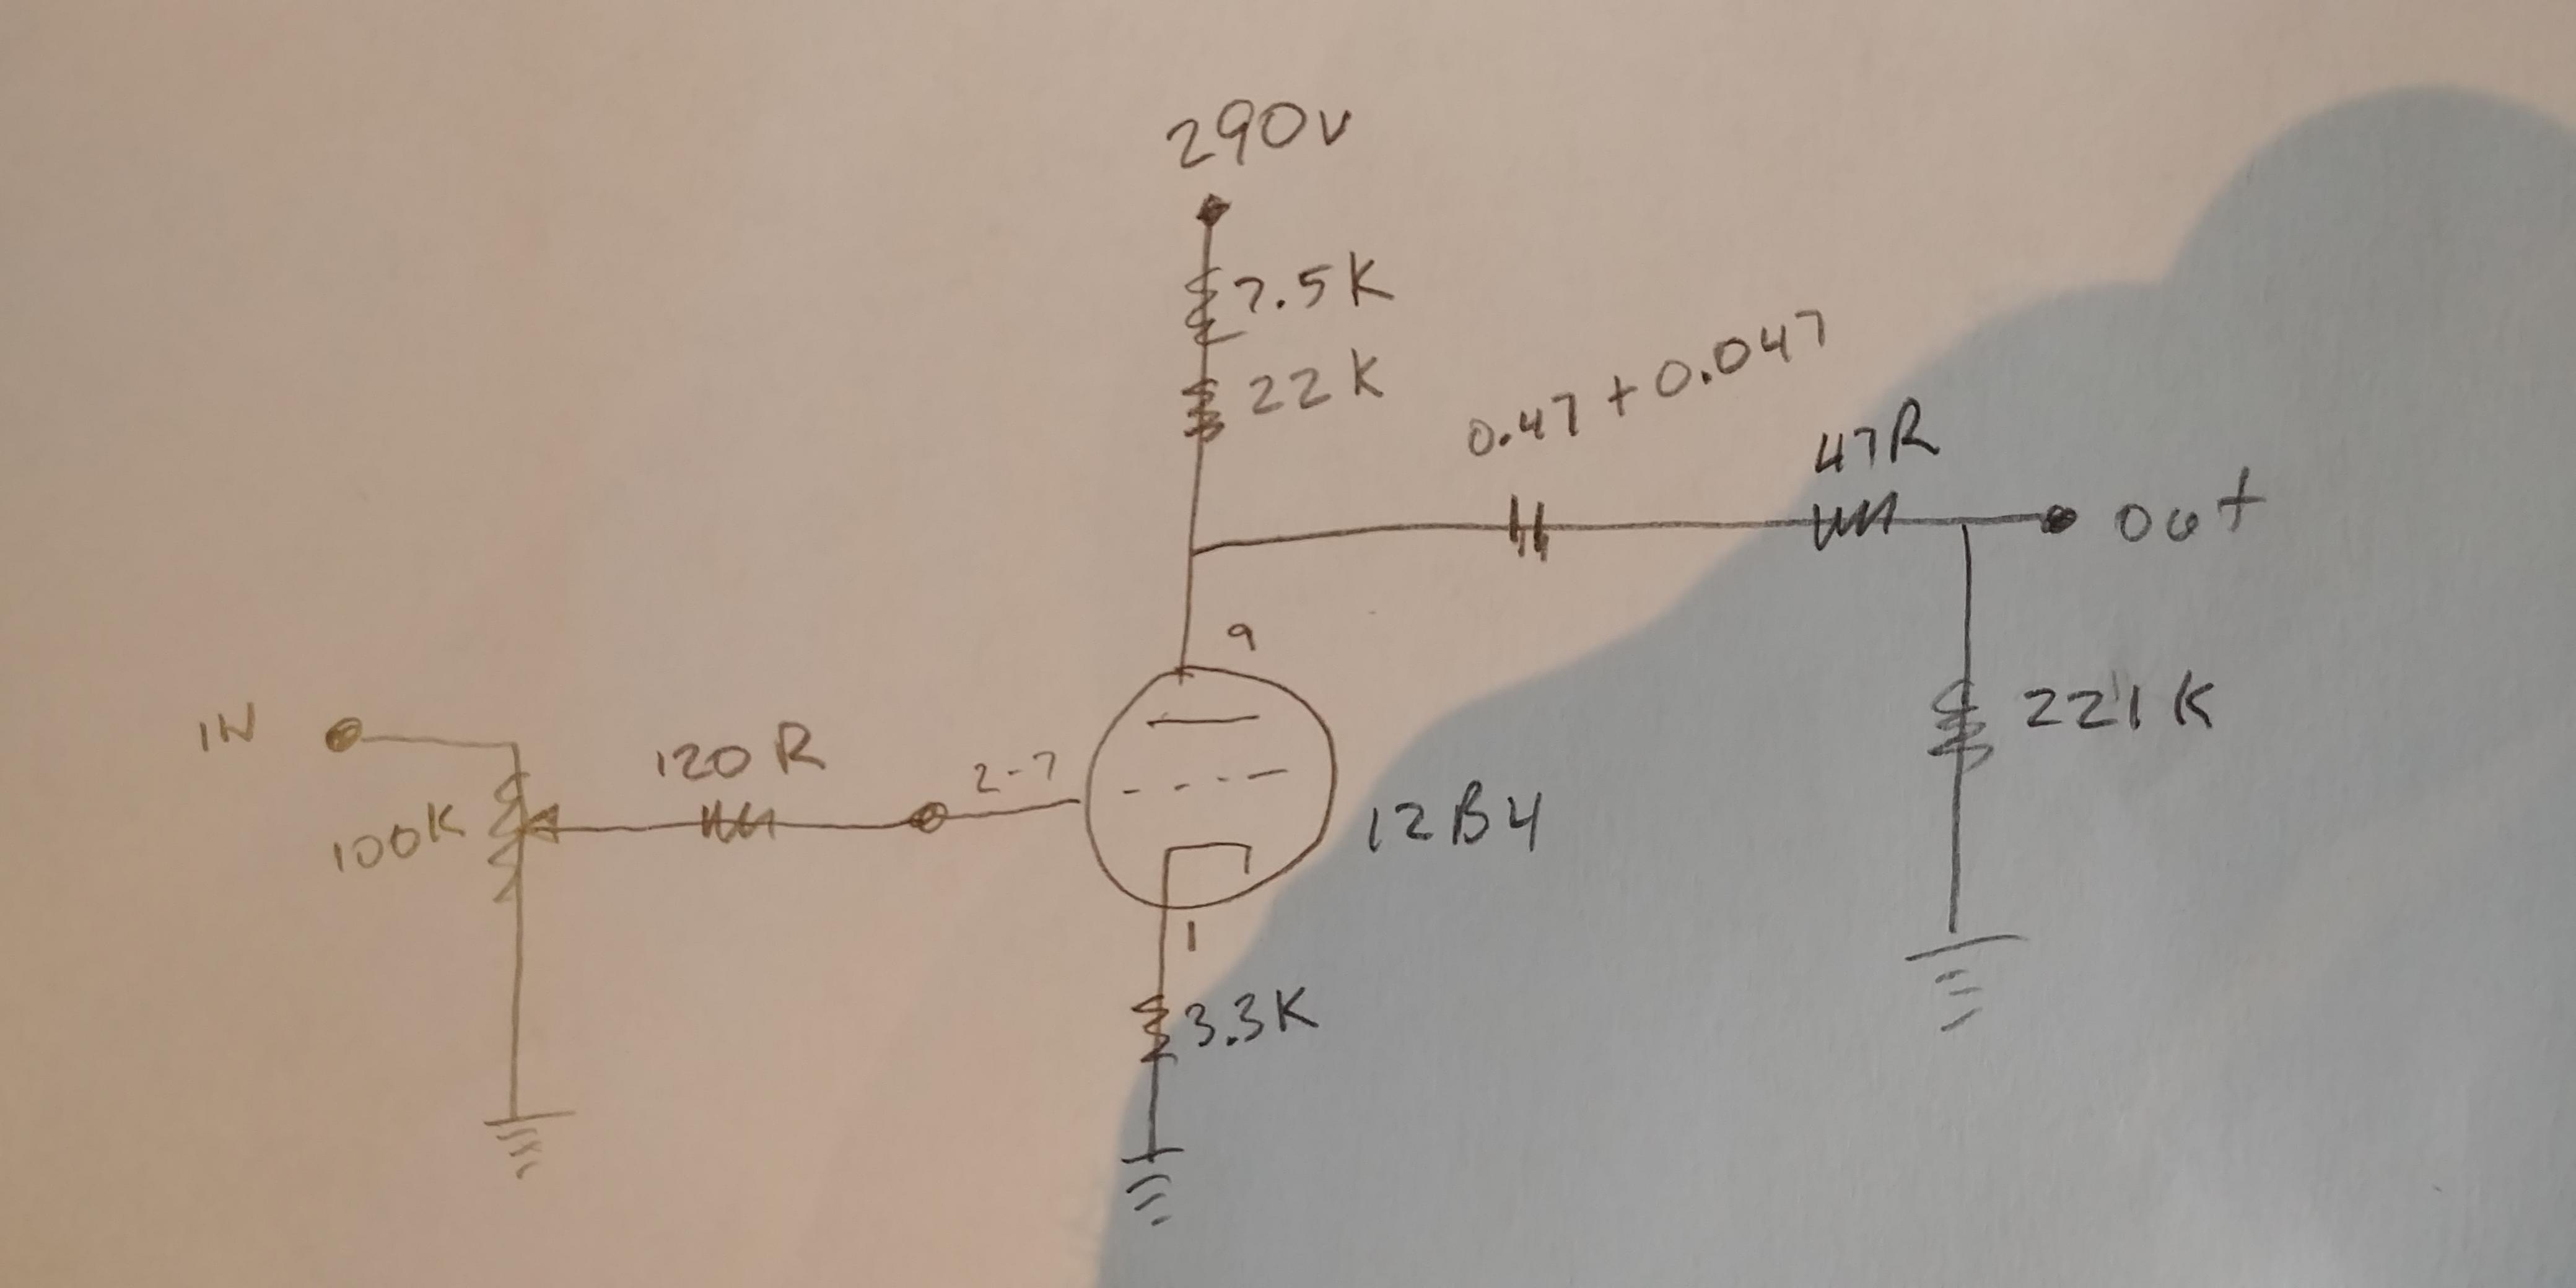 290v
7.5K
22K
0.47 + 0.047
47R
out
9
221K
IN
100K
120R
2-7
12B4
1
3.3K